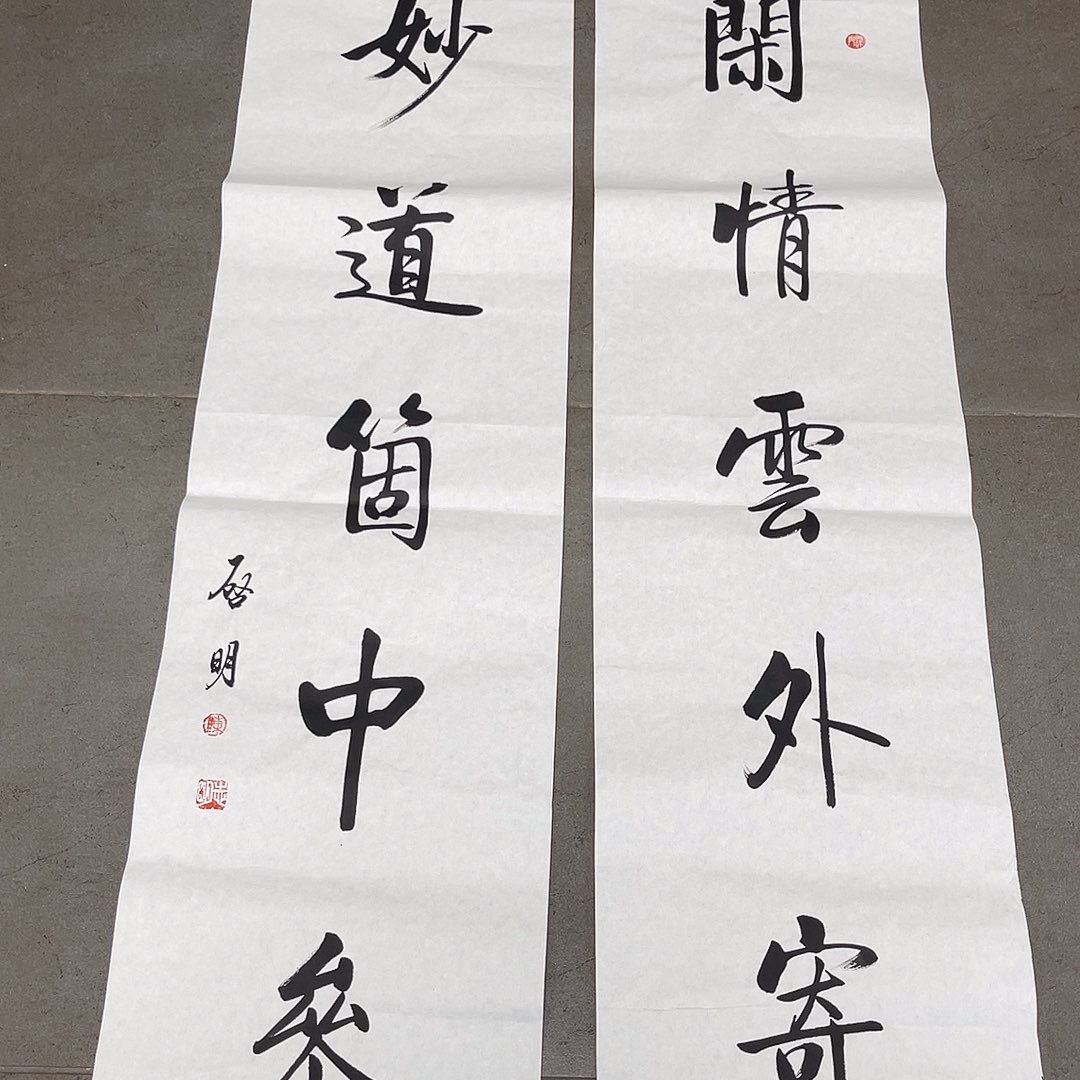 閑情雲外寄
妙道箇中參
启明